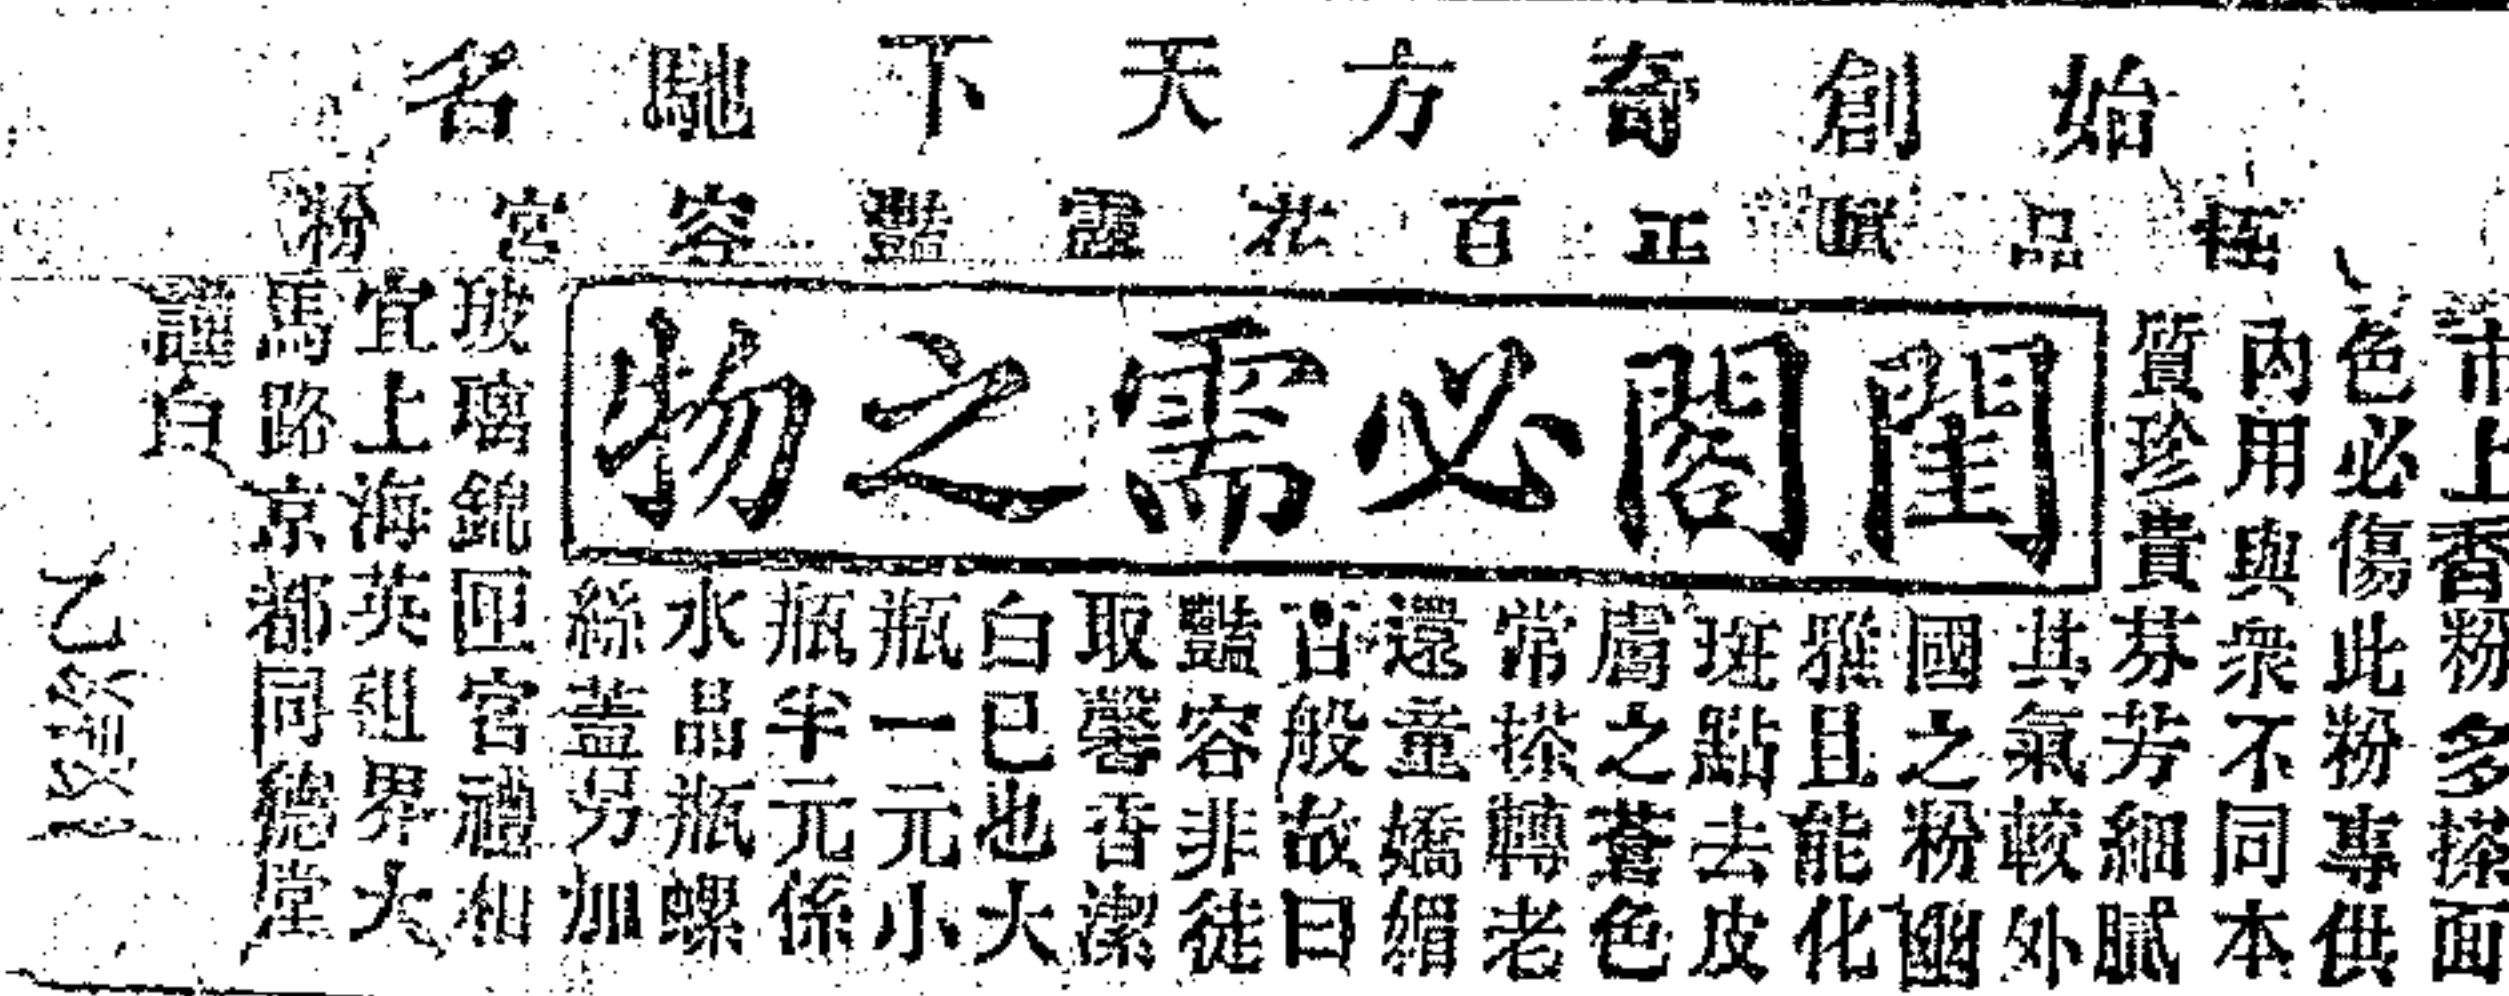 始創奇方天下馳名
極品貢正百花露豔容宮粉
閨閣必需之物
市上香粉多搽面
色必傷此粉專供
內用與衆不同本
質珍貴芬芳細膩
其氣較外
國之粉幽
雅且能化
斑點去皮
膚之蒼色
常搽轉老
還童嬌媚
百般故曰
豔容非徒
取馨香潔
白已也大
瓶一元小
瓶半元係
水晶瓶螺
絲蓋另加
玻璃錦匣官禮相
宜上海英租界大
馬路京都同德堂
謹白